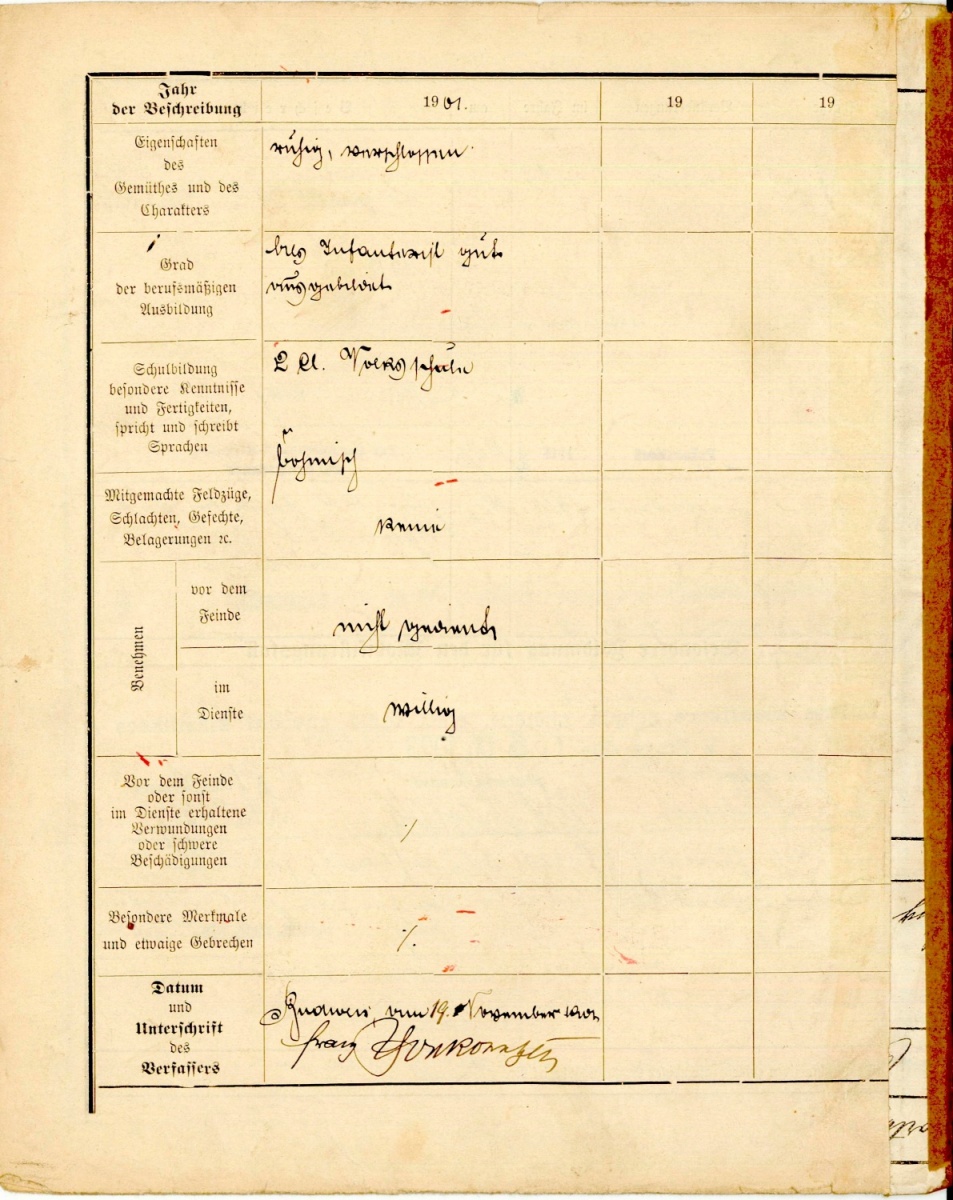 Jahr
der Beschreibung
1901.
19
19
Eigenschaften
des
Gemüthes und des
Charakters
ruhig, verschlossen
Grad
der berufsmäßigen
Ausbildung
als Infanterist gut
ausgebildet
Schulbildung
besondere Kenntnisse
und Fertigkeiten,
spricht und schreibt
Sprachen
2 Cl. Volksschule
böhmisch
Mitgemachte Feldzüge,
Schlachten, Gefechte,
Belagerungen ꝛc.
keine
Benehmen
vor dem
Feinde
nicht gedient
im
Dienste
willig
Vor dem Feinde
oder sonst
im Dienste erhaltene
Verwundungen
oder schwere
Beschädigungen
./
Besondere Merkmale
und etwaige Gebrechen
./.
Datum
und
Unterschrift
des
Verfassers
Budweis, am 19. November 1901
Franz